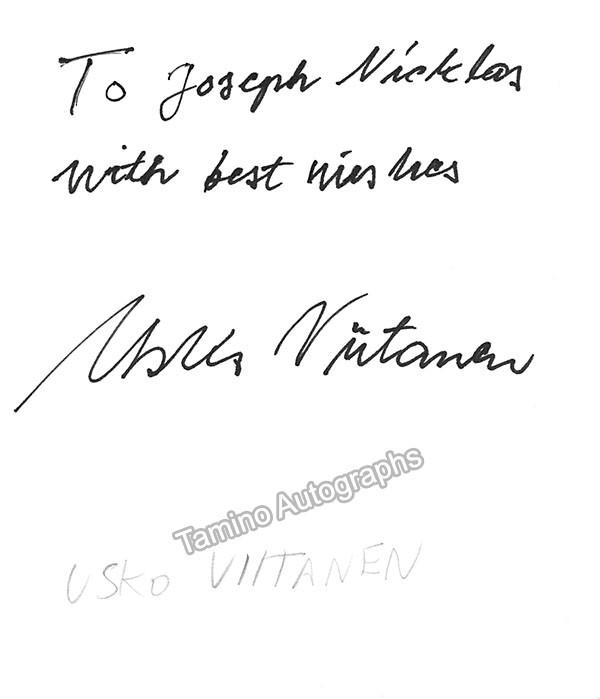 To Joseph Nicklas
with best wishes
Usko Viitanen
Tamino Autographs
USKO VIITANEN